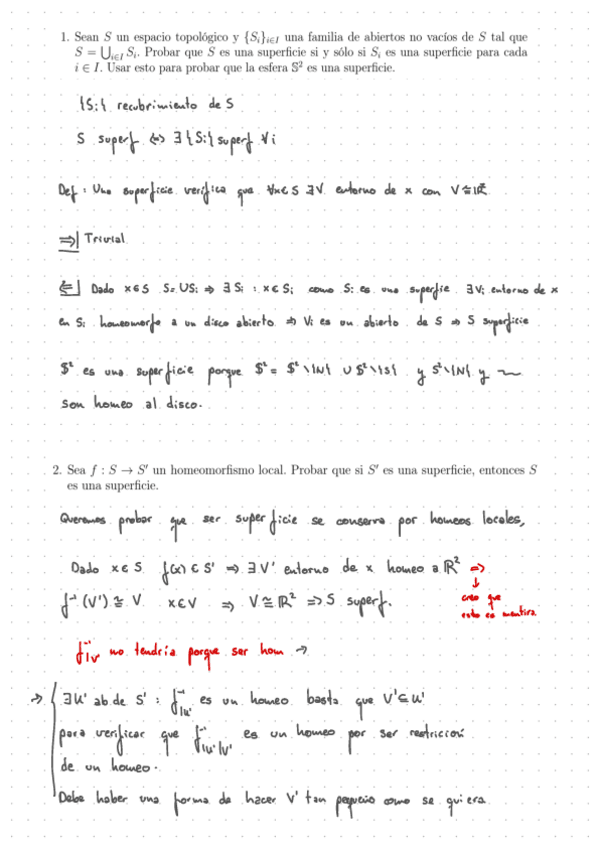 1. Sean S un espacio topológico y {Sᵢ}ᵢ∈I una familia de abiertos no vacíos de S tal que
S = ⋃ᵢ∈I Sᵢ. Probar que S es una superficie si y sólo si Sᵢ es una superficie para cada
i ∈ I. Usar esto para probar que la esfera 𝕊² es una superficie.
{Sᵢ} recubrimiento de S
S superf ⇔ ∃ {Sᵢ} superf ∀i
Def: Una superficie verifica que ∀x∈S ∃V entorno de x con V≅ℝ²
⇒| Trivial
⇐| Dado x∈S S=∪Sᵢ ⇒ ∃ Sᵢ : x∈Sᵢ como Sᵢ es una superfie ∃Vᵢ entorno de x
en Sᵢ homeomorfo a un disco abierto ⇒ Vᵢ es un abierto de S ⇒ S superficie
𝕊² es una superficie porque 𝕊² = 𝕊² \ {N} ∪ 𝕊² \ {S} y 𝕊² \ {N} y ~
son homeo al disco.
2. Sea f : S → S′ un homeomorfismo local. Probar que si S′ es una superficie, entonces S
es una superficie.
Queremos probar que ser superficie se conserva por homeos locales,
Dado x∈S f(x)∈S' ⇒ ∃V' entorno de x homeo a ℝ² ⇒
f⁻¹(V') ≅ V x∈V ⇒ V≅ℝ² ⇒ S superf.
↓
creo que
esto es mentira
f⁻¹|V no tendría porque ser hom →
→ ∃U' ab de S' : f⁻¹|U' es un homeo basta que V'⊆U'
para verificar que f⁻¹|U'|V' es un homeo por ser restricción
de un homeo.
Debe haber una forma de hacer V' tan pequeño como se quiera